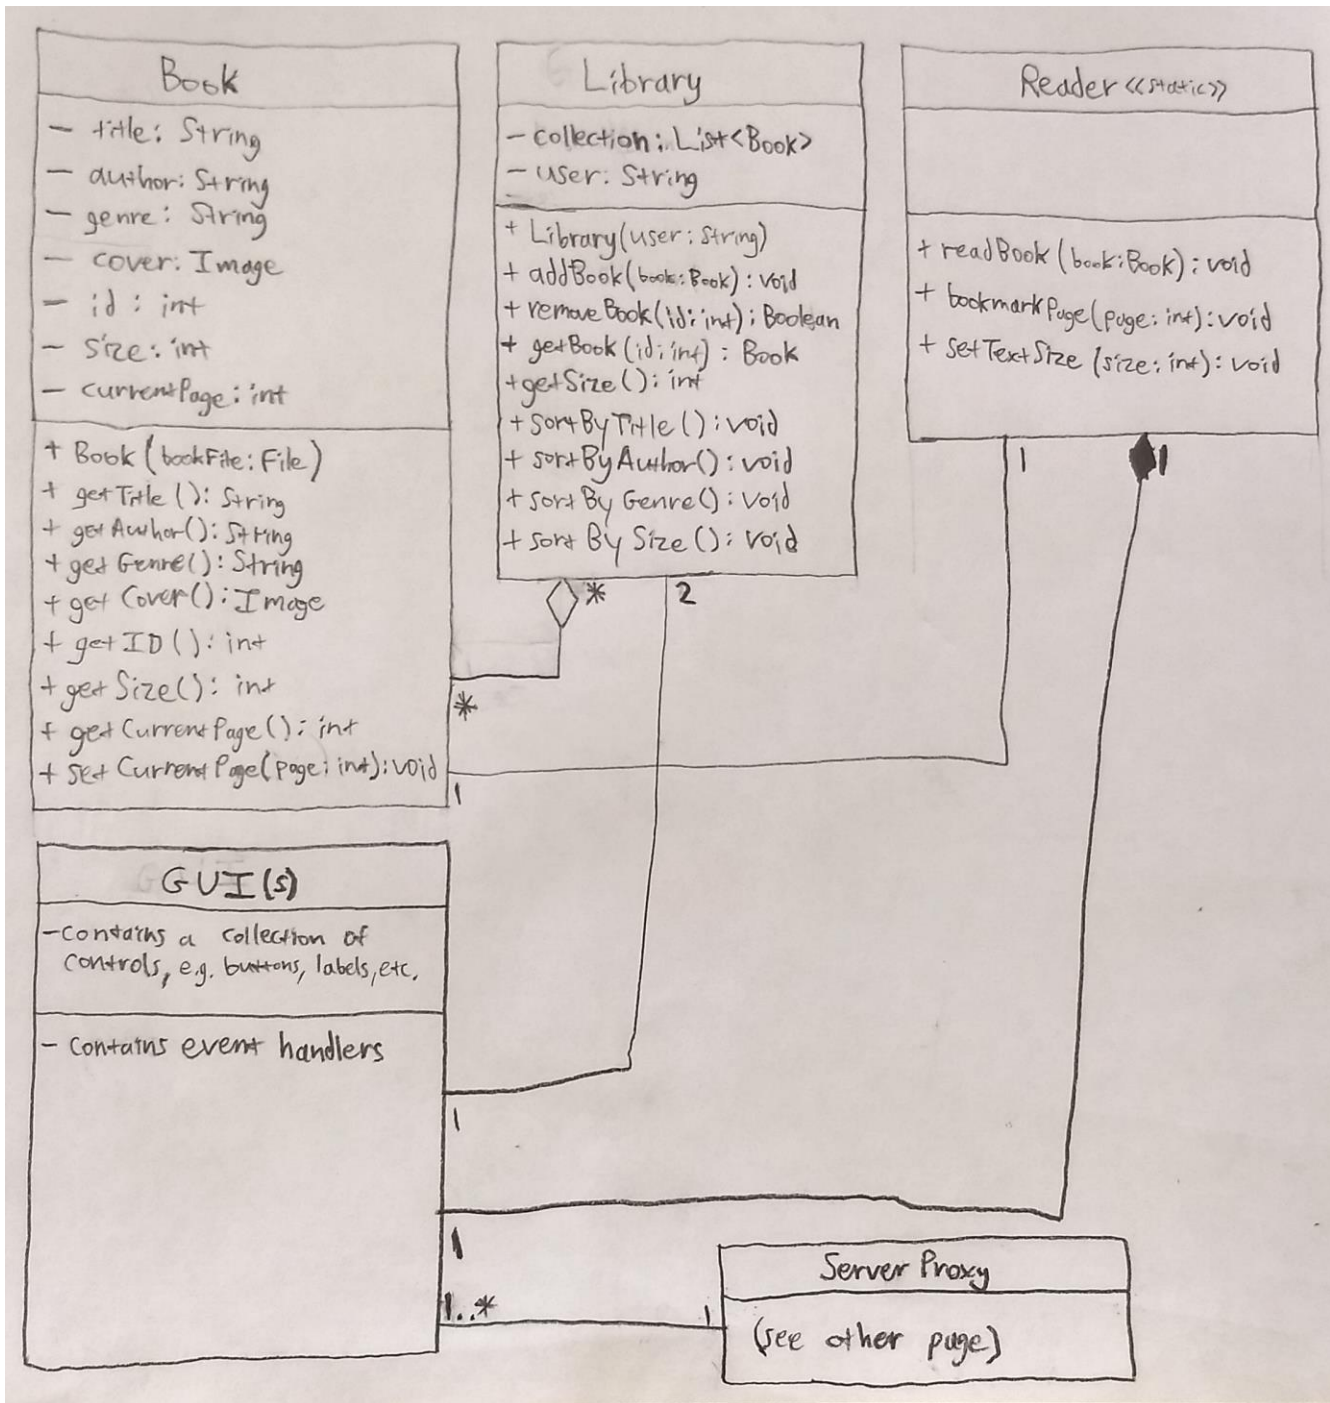 Book
- title: String
- author: String
- genre: String
- cover: Image
- id: int
- size: int
- currentPage: int
+ Book (bookFile: File)
+ getTitle(): String
+ getAuthor(): String
+ getGenre(): String
+ getCover(): Image
+ getID(): int
+ getSize(): int
+ getCurrentPage(): int
+ setCurrentPage(page: int): void
Library
- collection: List<Book>
- user: String
+ Library(user: String)
+ addBook(book: Book): void
+ removeBook(id: int): Boolean
+ getBook(id: int): Book
+ getSize(): int
+ sortByTitle(): void
+ sortByAuthor(): void
+ sortByGenre(): void
+ sortBySize(): void
Reader <<static>>
+ readBook (book: Book): void
+ bookmarkPage(page: int): void
+ setTextSize (size: int): void
* 2
1 1
*
1
GUI(s)
- contains a collection of
controls, e.g. buttons, labels, etc.
- contains event handlers
1
1
1..* 1
Server Proxy
(see other page)